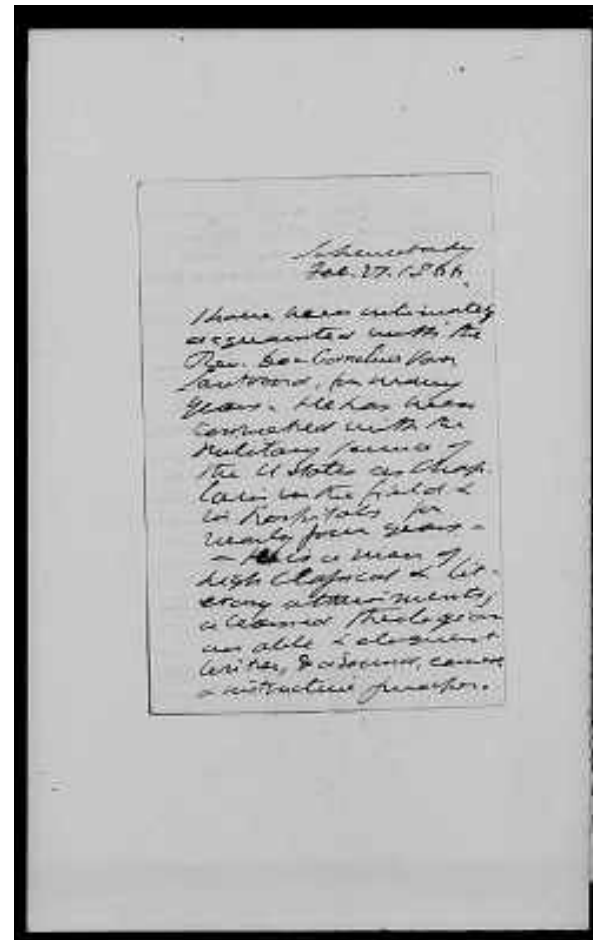 Schenectady
Feb. 27. 1866.
I have been intimately
acquainted with the
Rev. Cornelius Van
Santvoord, for many
years. He has been
connected with the
military service of
the U States as Chap-
lain in the field &
in hospitals for
nearly four years -
- He is a man of
high Classical & lit-
erary attainments,
a learned theologian
an able & eloquent
writer, & a sound,
& instructive preacher.